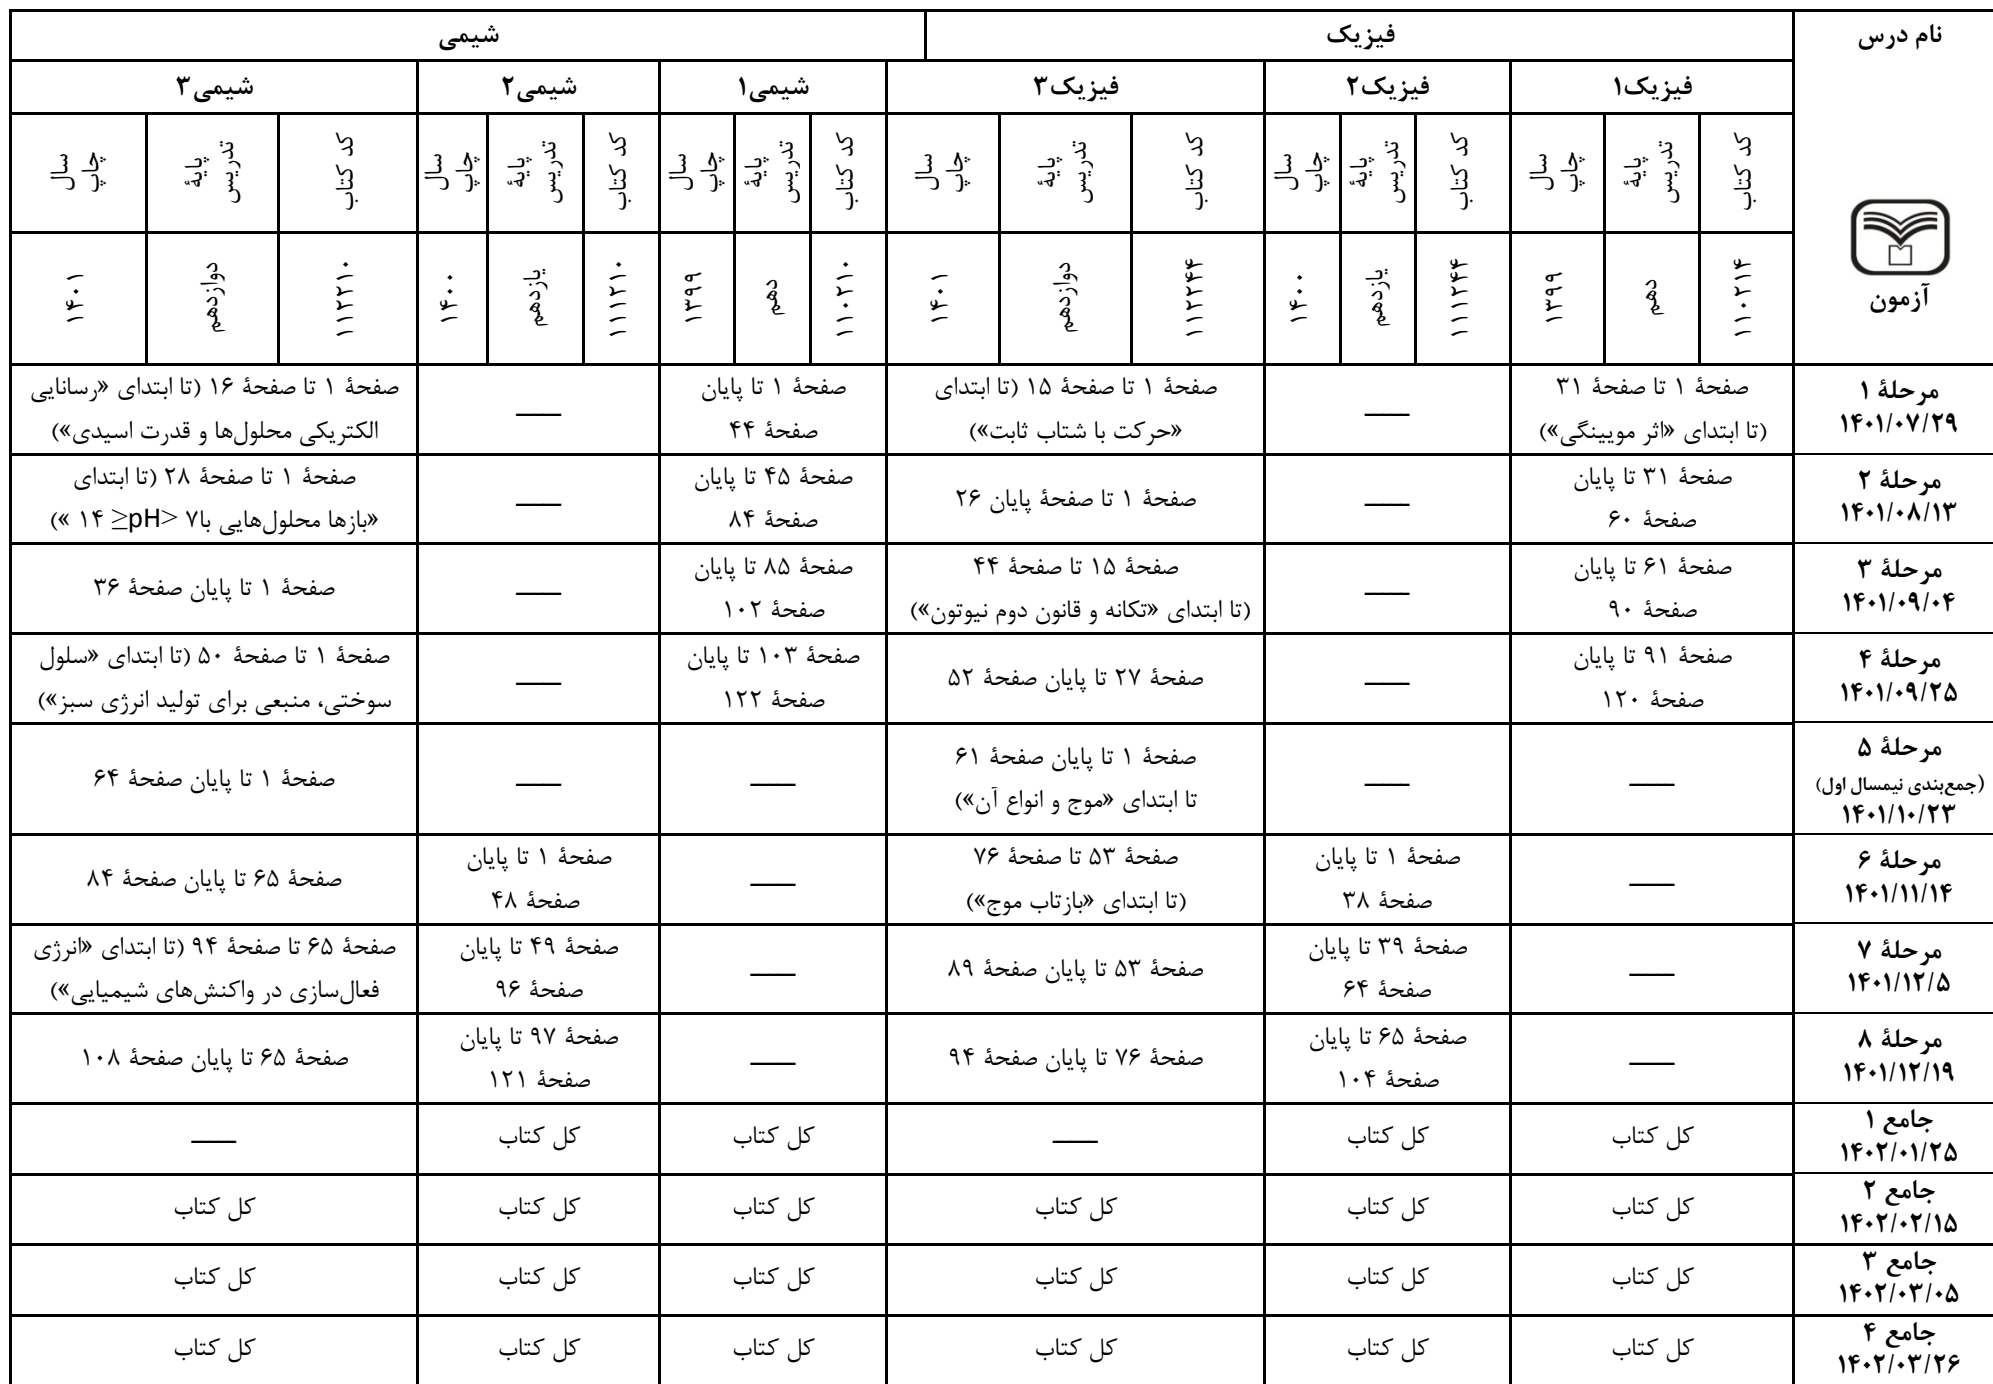 نام درس
فیزیک
شیمی
فیزیک۱
فیزیک۲
فیزیک۳
شیمی۱
شیمی۲
شیمی۳
آزمون
کد کتاب
پایهٔ تدریس
سال چاپ
کد کتاب
پایهٔ تدریس
سال چاپ
کد کتاب
پایهٔ تدریس
سال چاپ
کد کتاب
پایهٔ تدریس
سال چاپ
کد کتاب
پایهٔ تدریس
سال چاپ
کد کتاب
پایهٔ تدریس
سال چاپ
۱۱۰۲۱۴
دهم
۱۳۹۹
۱۱۱۲۴۴
یازدهم
۱۴۰۰
۱۱۲۲۴۴
دوازدهم
۱۴۰۱
۱۱۰۲۱۰
دهم
۱۳۹۹
۱۱۱۲۱۰
یازدهم
۱۴۰۰
۱۱۲۲۱۰
دوازدهم
۱۴۰۱
مرحلهٔ ۱
۱۴۰۱/۰۷/۲۹
صفحهٔ ۱ تا صفحهٔ ۳۱
(تا ابتدای «اثر مویینگی»)
——
صفحهٔ ۱ تا صفحهٔ ۱۵ (تا ابتدای
«حرکت با شتاب ثابت»)
صفحهٔ ۱ تا پایان
صفحهٔ ۴۴
——
صفحهٔ ۱ تا صفحهٔ ۱۶ (تا ابتدای «رسانایی
الکتریکی محلول‌ها و قدرت اسیدی»)
مرحلهٔ ۲
۱۴۰۱/۰۸/۱۳
صفحهٔ ۳۱ تا پایان
صفحهٔ ۶۰
——
صفحهٔ ۱ تا صفحهٔ پایان ۲۶
صفحهٔ ۴۵ تا پایان
صفحهٔ ۸۴
——
صفحهٔ ۱ تا صفحهٔ ۲۸ (تا ابتدای
«بازها محلول‌هایی با۷ <pH≤ ۱۴ »)
مرحلهٔ ۳
۱۴۰۱/۰۹/۰۴
صفحهٔ ۶۱ تا پایان
صفحهٔ ۹۰
——
صفحهٔ ۱۵ تا صفحهٔ ۴۴
(تا ابتدای «تکانه و قانون دوم نیوتون»)
صفحهٔ ۸۵ تا پایان
صفحهٔ ۱۰۲
——
صفحهٔ ۱ تا پایان صفحهٔ ۳۶
مرحلهٔ ۴
۱۴۰۱/۰۹/۲۵
صفحهٔ ۹۱ تا پایان
صفحهٔ ۱۲۰
——
صفحهٔ ۲۷ تا پایان صفحهٔ ۵۲
صفحهٔ ۱۰۳ تا پایان
صفحهٔ ۱۲۲
——
صفحهٔ ۱ تا صفحهٔ ۵۰ (تا ابتدای «سلول
سوختی، منبعی برای تولید انرژی سبز»)
مرحلهٔ ۵
(جمع‌بندی نیمسال اول)
۱۴۰۱/۱۰/۲۳
——
——
صفحهٔ ۱ تا پایان صفحهٔ ۶۱
تا ابتدای «موج و انواع آن»)
——
——
صفحهٔ ۱ تا پایان صفحهٔ ۶۴
مرحلهٔ ۶
۱۴۰۱/۱۱/۱۴
——
صفحهٔ ۱ تا پایان
صفحهٔ ۳۸
صفحهٔ ۵۳ تا صفحهٔ ۷۶
(تا ابتدای «بازتاب موج»)
——
صفحهٔ ۱ تا پایان
صفحهٔ ۴۸
صفحهٔ ۶۵ تا پایان صفحهٔ ۸۴
مرحلهٔ ۷
۱۴۰۱/۱۲/۵
——
صفحهٔ ۳۹ تا پایان
صفحهٔ ۶۴
صفحهٔ ۵۳ تا پایان صفحهٔ ۸۹
——
صفحهٔ ۴۹ تا پایان
صفحهٔ ۹۶
صفحهٔ ۶۵ تا صفحهٔ ۹۴ (تا ابتدای «انرژی
فعال‌سازی در واکنش‌های شیمیایی»)
مرحلهٔ ۸
۱۴۰۱/۱۲/۱۹
——
صفحهٔ ۶۵ تا پایان
صفحهٔ ۱۰۴
صفحهٔ ۷۶ تا پایان صفحهٔ ۹۴
——
صفحهٔ ۹۷ تا پایان
صفحهٔ ۱۲۱
صفحهٔ ۶۵ تا پایان صفحهٔ ۱۰۸
جامع ۱
۱۴۰۲/۰۱/۲۵
کل کتاب
کل کتاب
——
کل کتاب
کل کتاب
——
جامع ۲
۱۴۰۲/۰۲/۱۵
کل کتاب
کل کتاب
کل کتاب
کل کتاب
کل کتاب
کل کتاب
جامع ۳
۱۴۰۲/۰۳/۰۵
کل کتاب
کل کتاب
کل کتاب
کل کتاب
کل کتاب
کل کتاب
جامع ۴
۱۴۰۲/۰۳/۲۶
کل کتاب
کل کتاب
کل کتاب
کل کتاب
کل کتاب
کل کتاب